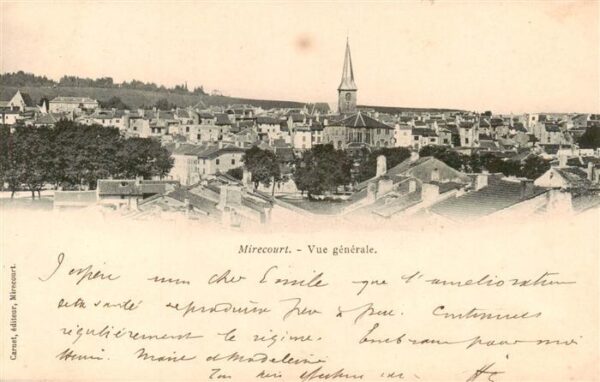 Mirecourt. - Vue générale.
Carnet, éditeur, Mirecourt.
J'espère mon cher Emile que l'amélioration
de ta santé se produira peu à peu. Continues
régulièrement le régime. Embrasse pour moi
Henri. Marie et Madeleine
Ton bien